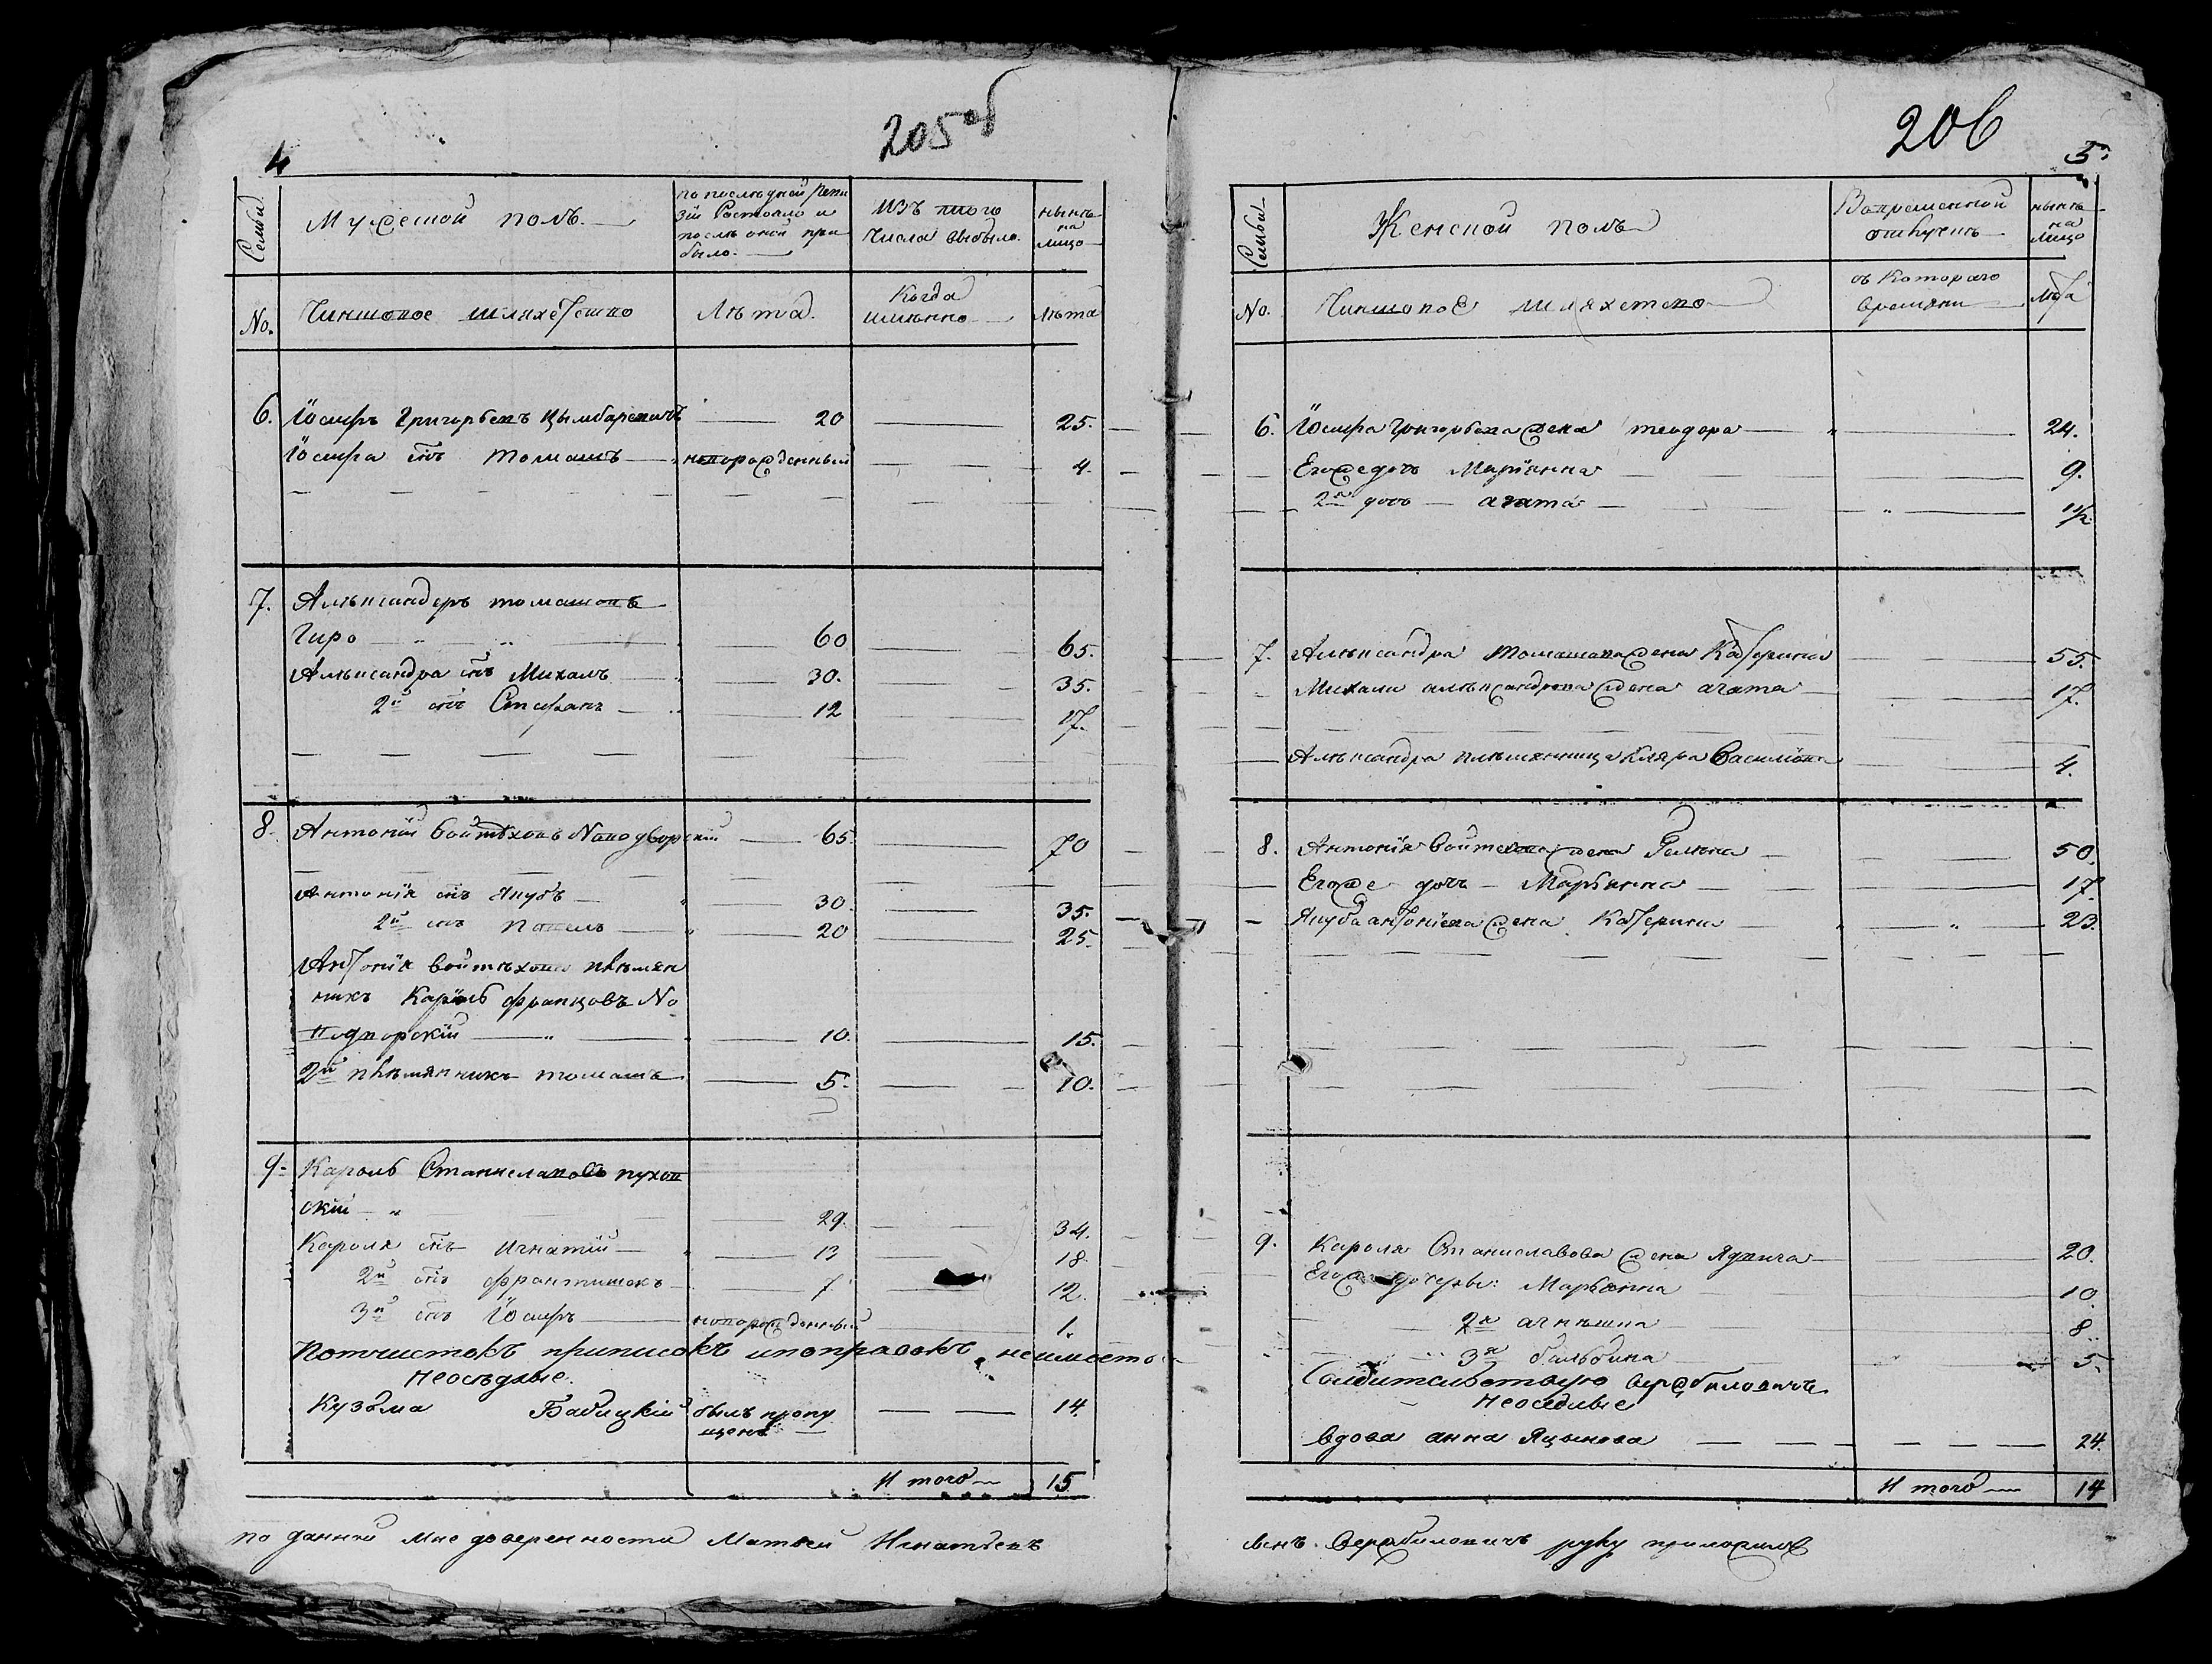 205об
4
Семьи
Мужеской полъ.
по последней реви
зіи состояло и
после оной при
было.
изъ того
числа выбыло.
ныне
на
лицо
No.
Чиншовое шляхетство
Лѣта.
Когда
именно
лѣта
6. Іосифъ Григорьевъ Цымбаревичъ 20 25.
Іосифа сынъ Томашъ новорожденный 4.
7. Алѣксандеръ томашовъ
Гиро 60 65.
Алѣксандра снъ Михалъ 30. 35.
2й снъ Стефанъ 12 17.
8. Антоній Войтѣховъ Новодворскій 65 70
Антонія снъ Якубъ 30. 35.
2й снъ Павелъ 20 25.
Антонія Войтѣхова племян
никъ Кароль францовъ Но
водворскій 10. 15.
2й племянникъ томашъ 5. 10.
9. Кароль Станиславовъ пухов
скій 29. 34.
Кароля снъ Игнатій 13 18.
2й снъ франтишекъ 7. 12.
3й снъ Іосифъ новорожденный 1.
Потчистокъ приписокъ ипоправокъ неимѣетъ
Неосѣдлые.
Кузьма Бабицкій былъ пропу
щенъ 14.
И того 15
по данной мне доверенности Матвей Игнатьевъ
206
5.
Семьи
Женской полъ
Во временной
отлучкѣ
ныне
на
лицо
No.
Чиншовое шляхетство
съ Котораго
времяни
лѣта
6. Іосифа Григорьева жена теодора 24.
Егоже дочь Маріянна 9.
2я дочь агата 1½
7. Алѣксандра Томашова жена Катерина 55.
Михала алѣксандрова жена агата 17.
Алѣксандра племянница Кляра Василіова 4.
8. Антонія Войтехова жена 50.
Егоже дочь Марьянна 17.
Якуба антоніева жена Катерина 23.
9. Кароля Станиславова жена Ядвига 20.
Егоже дочерьи: Марьянна 10
2я агнѣшка 8.
3я бальбина 5.
Вержбиловичъ
Неоседлые
Вдова анна Яцынова 24.
И того 14
сынъ Вержбиловичъ руку приложилъ